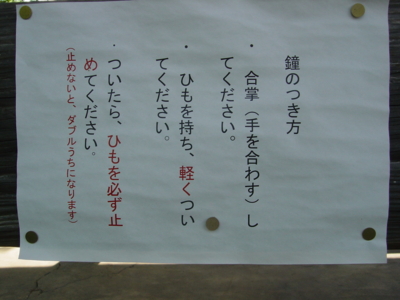 鐘のつき方
・合掌（手を合わす）し
てください。
・ひもを持ち、軽くつい
てください。
・ついたら、ひもを必ず止
めてください。
（止めないと、ダブルうちになります）